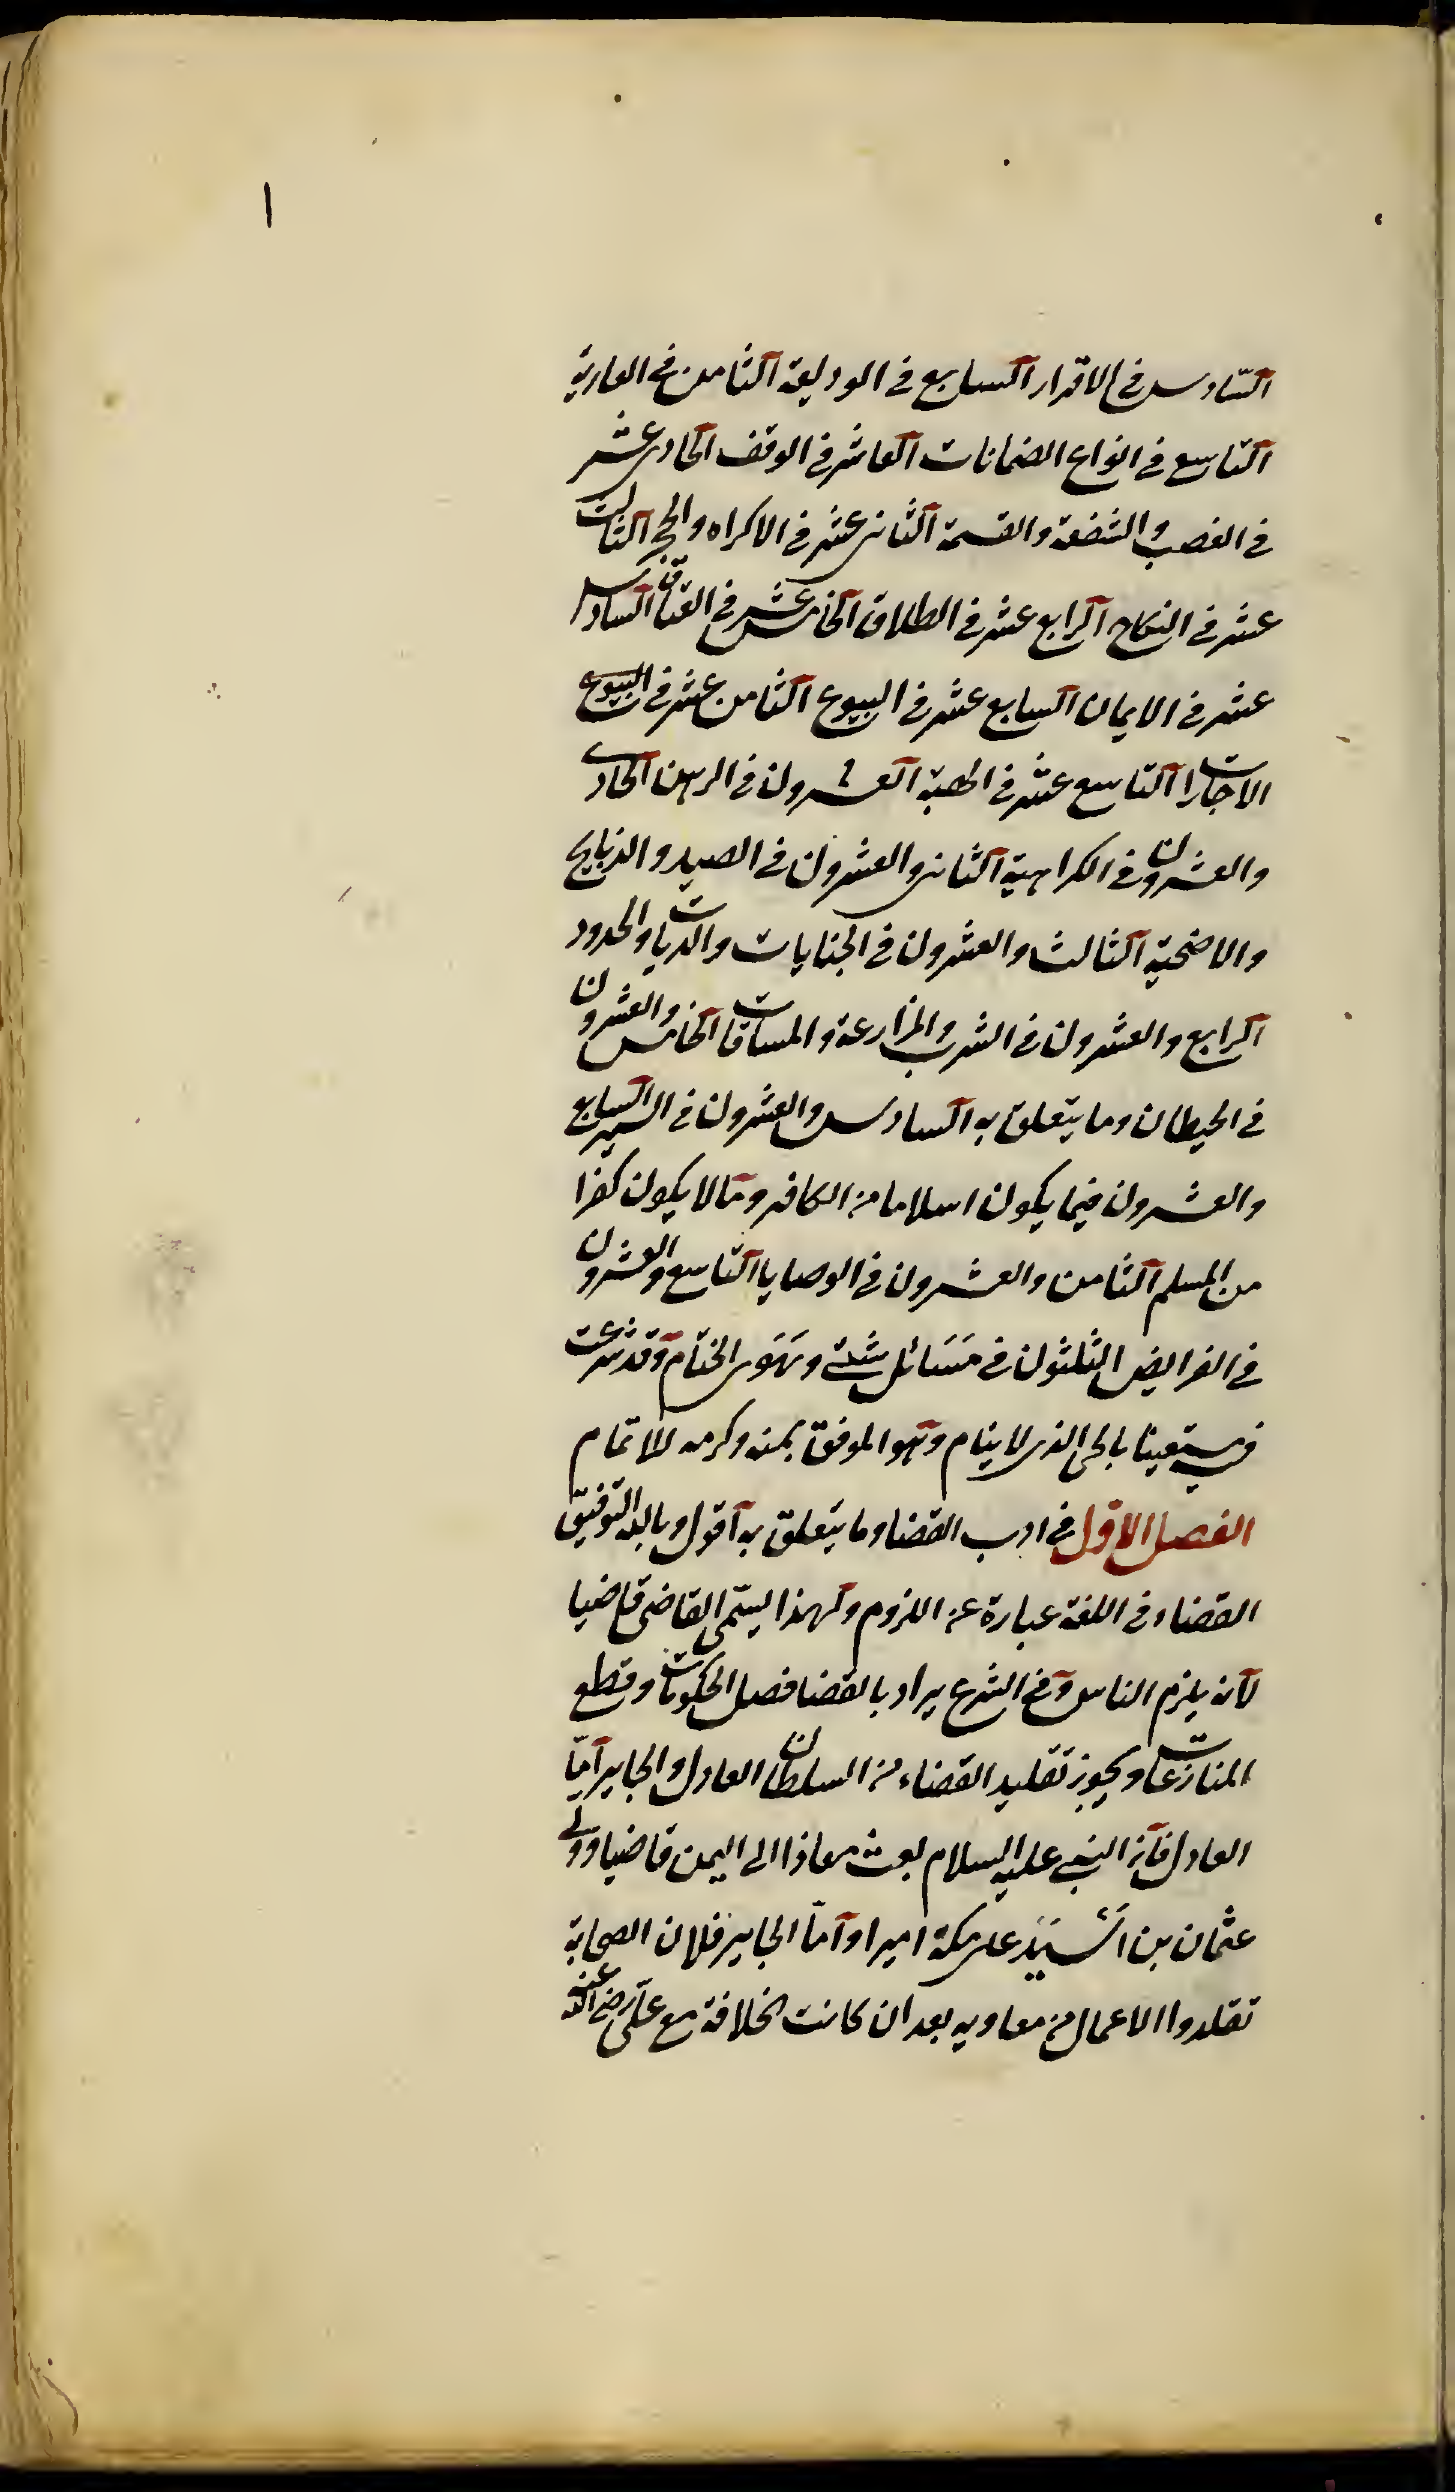 ١
السادس في الاقرار السابع في الوديعة الثامن في العارية
التاسع في انواع الضمانات العاشر في الوقف الحادى عشر
في الغصب والشفعة والقسمة الثانى عشر في الاكراه والحجر الثالث
عشر في النكاح الرابع عشر في الطلاق الخامس عشر في العتاق السادس
عشر في الايمان السابع عشر في البيوع الثامن عشر في البيوع
الاجارات التاسع عشر في الهبة العشرون في الرهن الحادى
والعشرون في الكراهية الثانى والعشرون في الصيد والذبايح
والاضحية الثالث والعشرون في الجنايات والديات والحدود
الرابع والعشرون في الشرب والمزارعة والمساقات الخامس والعشرون
في الحيطان وما يتعلق به السادس والعشرون في السير السابع
والعشرون فيما يكون اسلاما من الكافر ومالا يكون كفرا
من المسلم الثامن والعشرون في الوصايا التاسع والعشرون
في الفرايض الثلثون في مسائل شتى وهوى الختام وقد شرعت
فيه مستعينا بالحى الذى لا ينام وهو الموفق بمنه وكرمه للاتمام
الفصل الاول في ادب القضا وما يتعلق به اقول وبالله التوفيق
القضاء في اللغة عبارة عن اللزوم ولهذا يسمى القاضى قاضيا
لانه يلزم الناس وفي الشرع يراد بالقضا فصل الحكومات وقطع
المنازعات ويجوز تقليد القضاء من السلطان العادل والجاير اما
العادل فلان النبى عليه السلام بعث معاذا الى اليمن قاضيا وولى
عثمان بن اسيد على مكة اميرا واما الجاير فلان الصحابة
تقلدوا الاعمال من معاويه بعد ان كانت الخلافة مع على رضى الله عنه